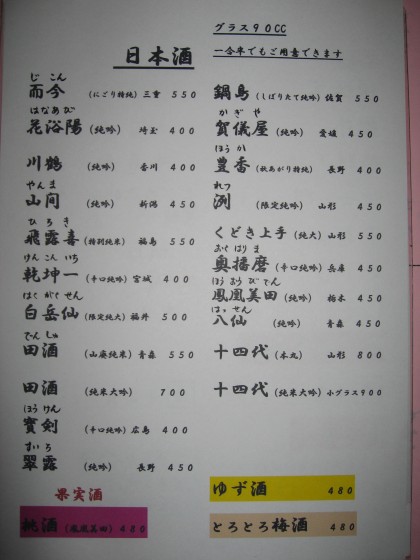 グラス９０CC
日本酒
一合半でもご用意できます
じこん
而今 (にごり特純) 三重 ５５０
はなあび
花浴陽 (純吟) 埼玉 ４００
川鶴 (純吟) 香川 ４００
やんま
山間 (純吟) 新潟 ４５０
ひろき
飛露喜 (特別純米) 福島 ５５０
けんこんいち
乾坤一 (辛口純吟) 宮城 ４００
はくがくせん
白岳仙 (限定純大) 福井 ５００
でんしゅ
田酒 (山廃純米) 青森 ５５０
田酒 (純米大吟) ７００
ほうけん
寳剣 (辛口純吟) 広島 ４００
すいろ
翠露 (純吟) 長野 ４５０
果実酒
桃酒 (鳳凰美田) ４８０
鍋島 (しぼりたて純吟) 佐賀 ５５０
かぎや
賀儀屋 (純吟) 愛媛 ４５０
ほうか
豊香 (秋あがり特純) 長野 ４００
れつ
洌 (限定純吟) 山形 ４５０
くどき上手 (純大) 山形 ５５０
おくはりま
奥播磨 (辛口純吟) 兵庫 ４５０
ほうおうびでん
鳳凰美田 (純吟) 栃木 ４５０
はっせん
八仙 (純吟) 青森 ４５０
十四代 (本丸) 山形 ８００
十四代 (純米大吟) 小グラス９００
ゆず酒 ４８０
とろとろ梅酒 ４８０